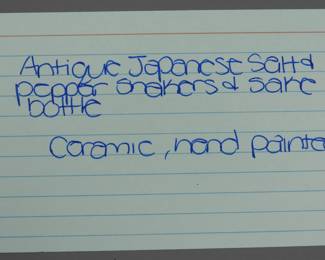 Antique Japanese Salt &
pepper shakers & sake
bottle
Ceramic, hand painte